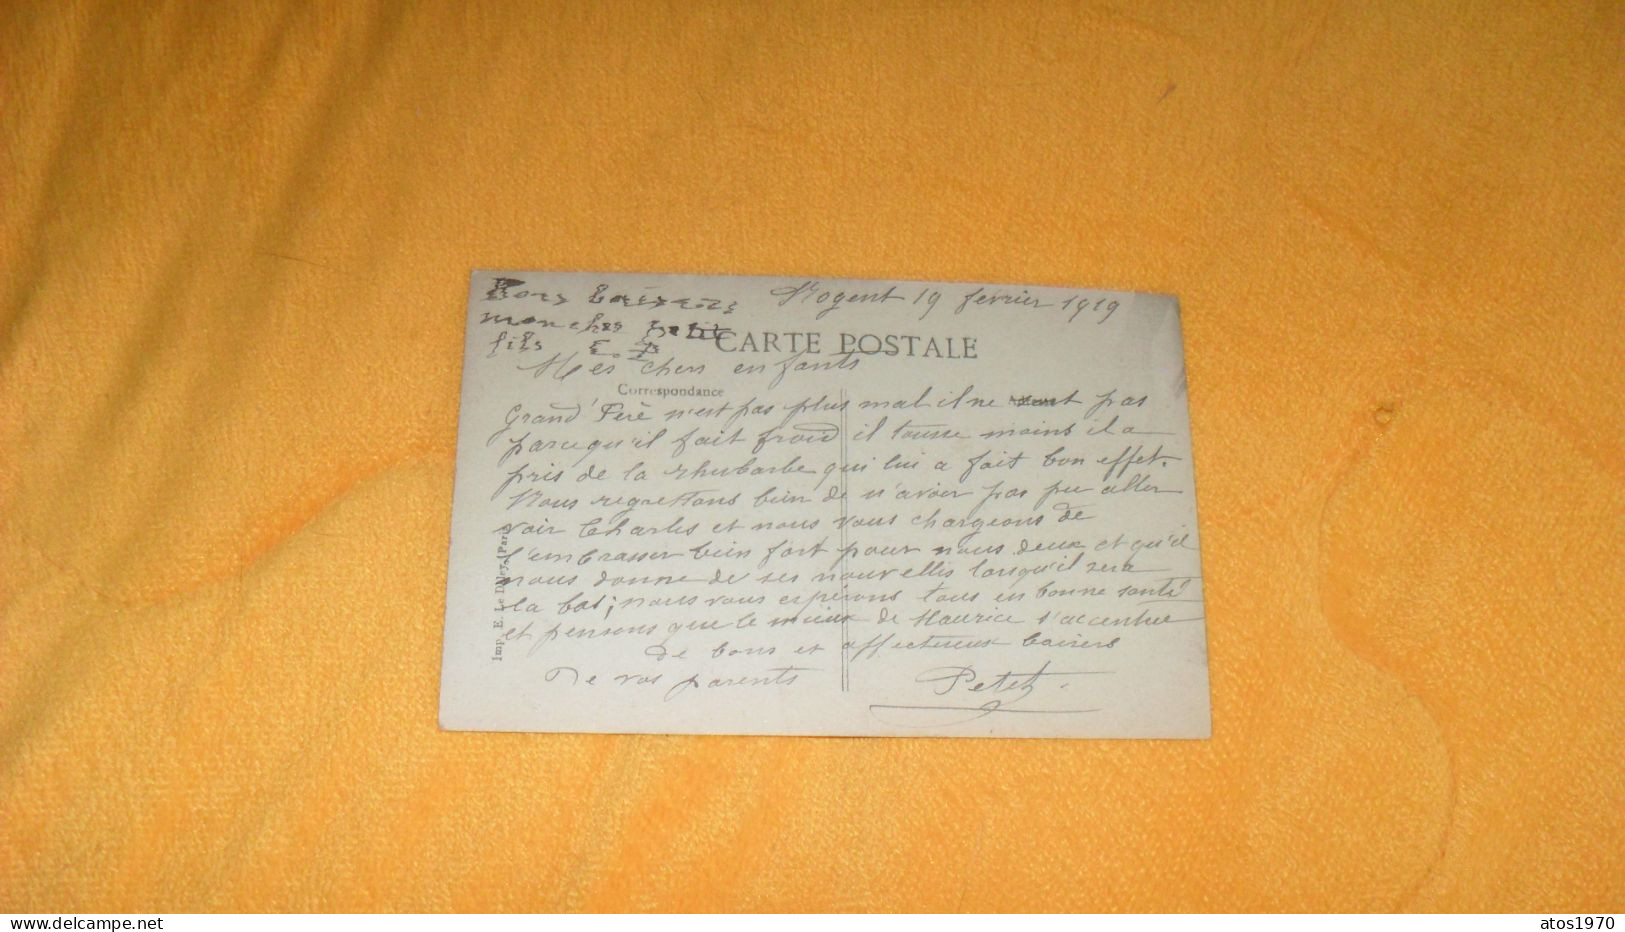 Bons baisers
mon cher petit
fils
Nogent 19 février 1919
CARTE POSTALE
Mes chers enfants
Correspondance
Grand Père n'est pas plus mal il ne sort pas
parcequ'il fait froid il tousse moins il a
pris de la rhubarbe qui lui a fait bon effet.
Nous regrettons bien de n'avoir pas pu aller
voir Charles et nous vous chargeons de
l'embrasser bien fort pour nous deux et qu'il
nous donne de ses nouvelles lorsqu'il sera
la bas; nous vous espérons tous en bonne santé
et pensons que le mieux de Maurice s'accentue
De bons et affectueux baisers
De vos parents
Petet
Imp. E. Le Deley, (Paris)
www.delcampe.net
atos1970